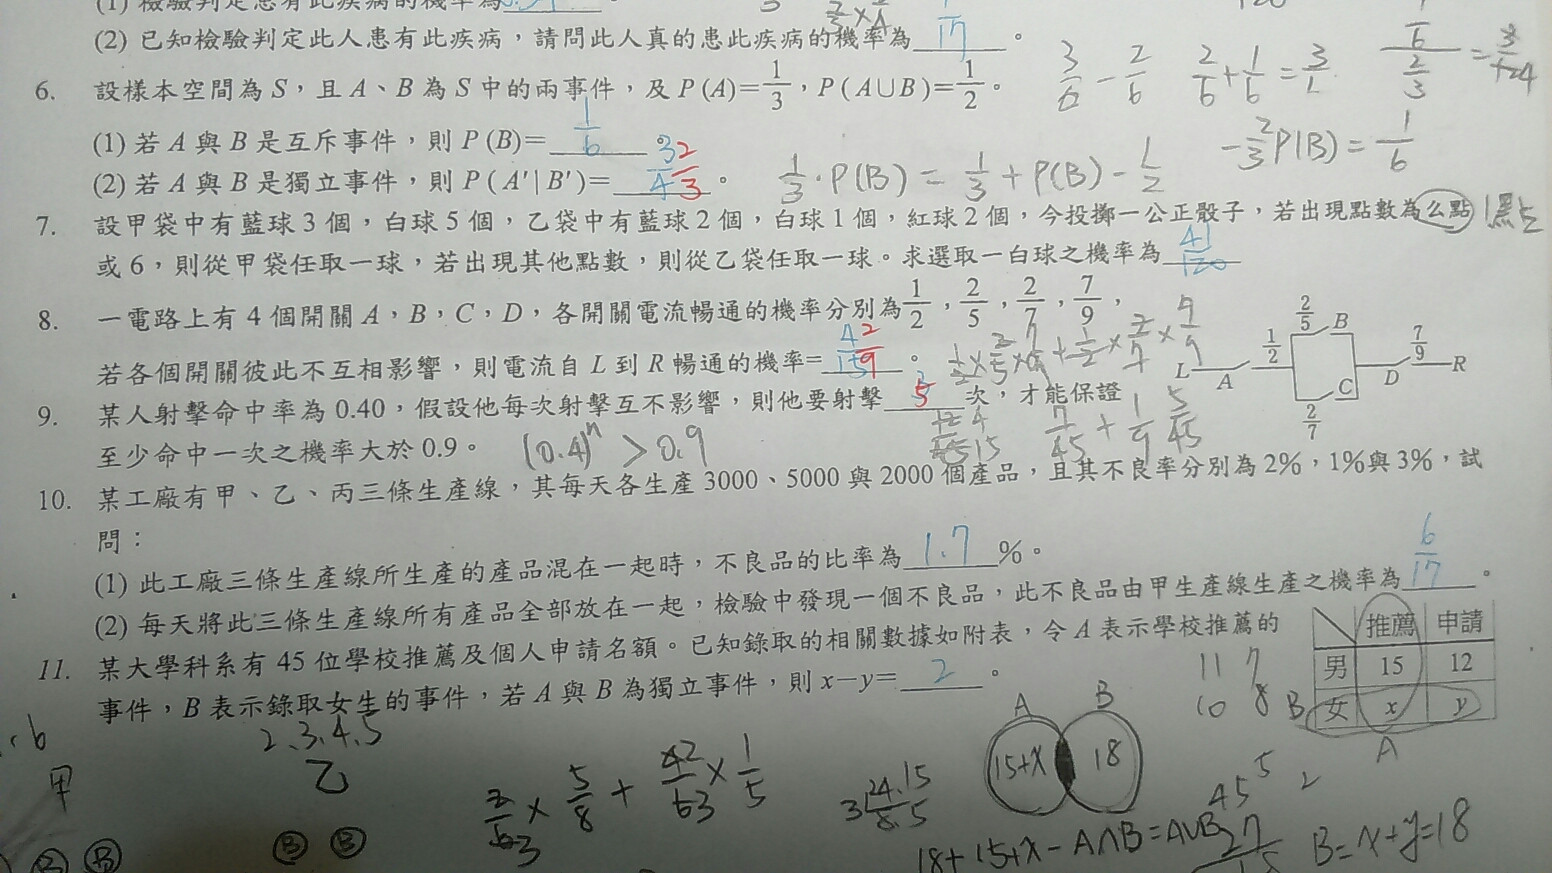 (1) 檢驗判定患有此疾病的機率為
(2) 已知檢驗判定此人患有此疾病，請問此人真的患此疾病的機率為 1/17 。
6. 設樣本空間為 S，且 A、B 為 S 中的兩事件，及 P(A)=1/3，P(A∪B)=1/2。
3/6 - 2/6 2/6 + 1/6 = 3/6
(1) 若 A 與 B 是互斥事件，則 P(B)= 1/6 。
-2/3 P(B) = 1/6
(2) 若 A 與 B 是獨立事件，則 P(A'|B')= 3/4 2/3 。
1/3 · P(B) = 1/3 + P(B) - 1/2
7. 設甲袋中有藍球 3 個，白球 5 個，乙袋中有藍球 2 個，白球 1 個，紅球 2 個，今投擲一公正骰子，若出現點數為么點 1點
或 6，則從甲袋任取一球，若出現其他點數，則從乙袋任取一球。求選取一白球之機率為 41/120
8. 一電路上有 4 個開關 A，B，C，D，各開關電流暢通的機率分別為 1/2，2/5，2/7，7/9，
若各個開關彼此不互相影響，則電流自 L 到 R 暢通的機率= 4/15 2/9 。
L A 1/2 2/5 B 2/7 C D 7/9 R
9. 某人射擊命中率為 0.40，假設他每次射擊互不影響，則他要射擊 5 次，才能保證
至少命中一次之機率大於 0.9。 (0.4)^n > 0.9
7/45 + 1/9 5/45
10. 某工廠有甲、乙、丙三條生產線，其每天各生產 3000、5000 與 2000 個產品，且其不良率分別為 2%，1%與 3%，試
問：
(1) 此工廠三條生產線所生產的產品混在一起時，不良品的比率為 1.7 %。
(2) 每天將此三條生產線所有產品全部放在一起，檢驗中發現一個不良品，此不良品由甲生產線生產之機率為 6/17 。
11. 某大學科系有 45 位學校推薦及個人申請名額。已知錄取的相關數據如附表，令 A 表示學校推薦的
事件，B 表示錄取女生的事件，若 A 與 B 為獨立事件，則 x－y= 2 。
推薦 申請
男 15 12
女 x y
B
A
11 7
10 8
2.3.4.5
甲
乙
5/8 + × 1/5
A B
15+x 18
18+15+x - A∩B = A∪B
B = x+y=18